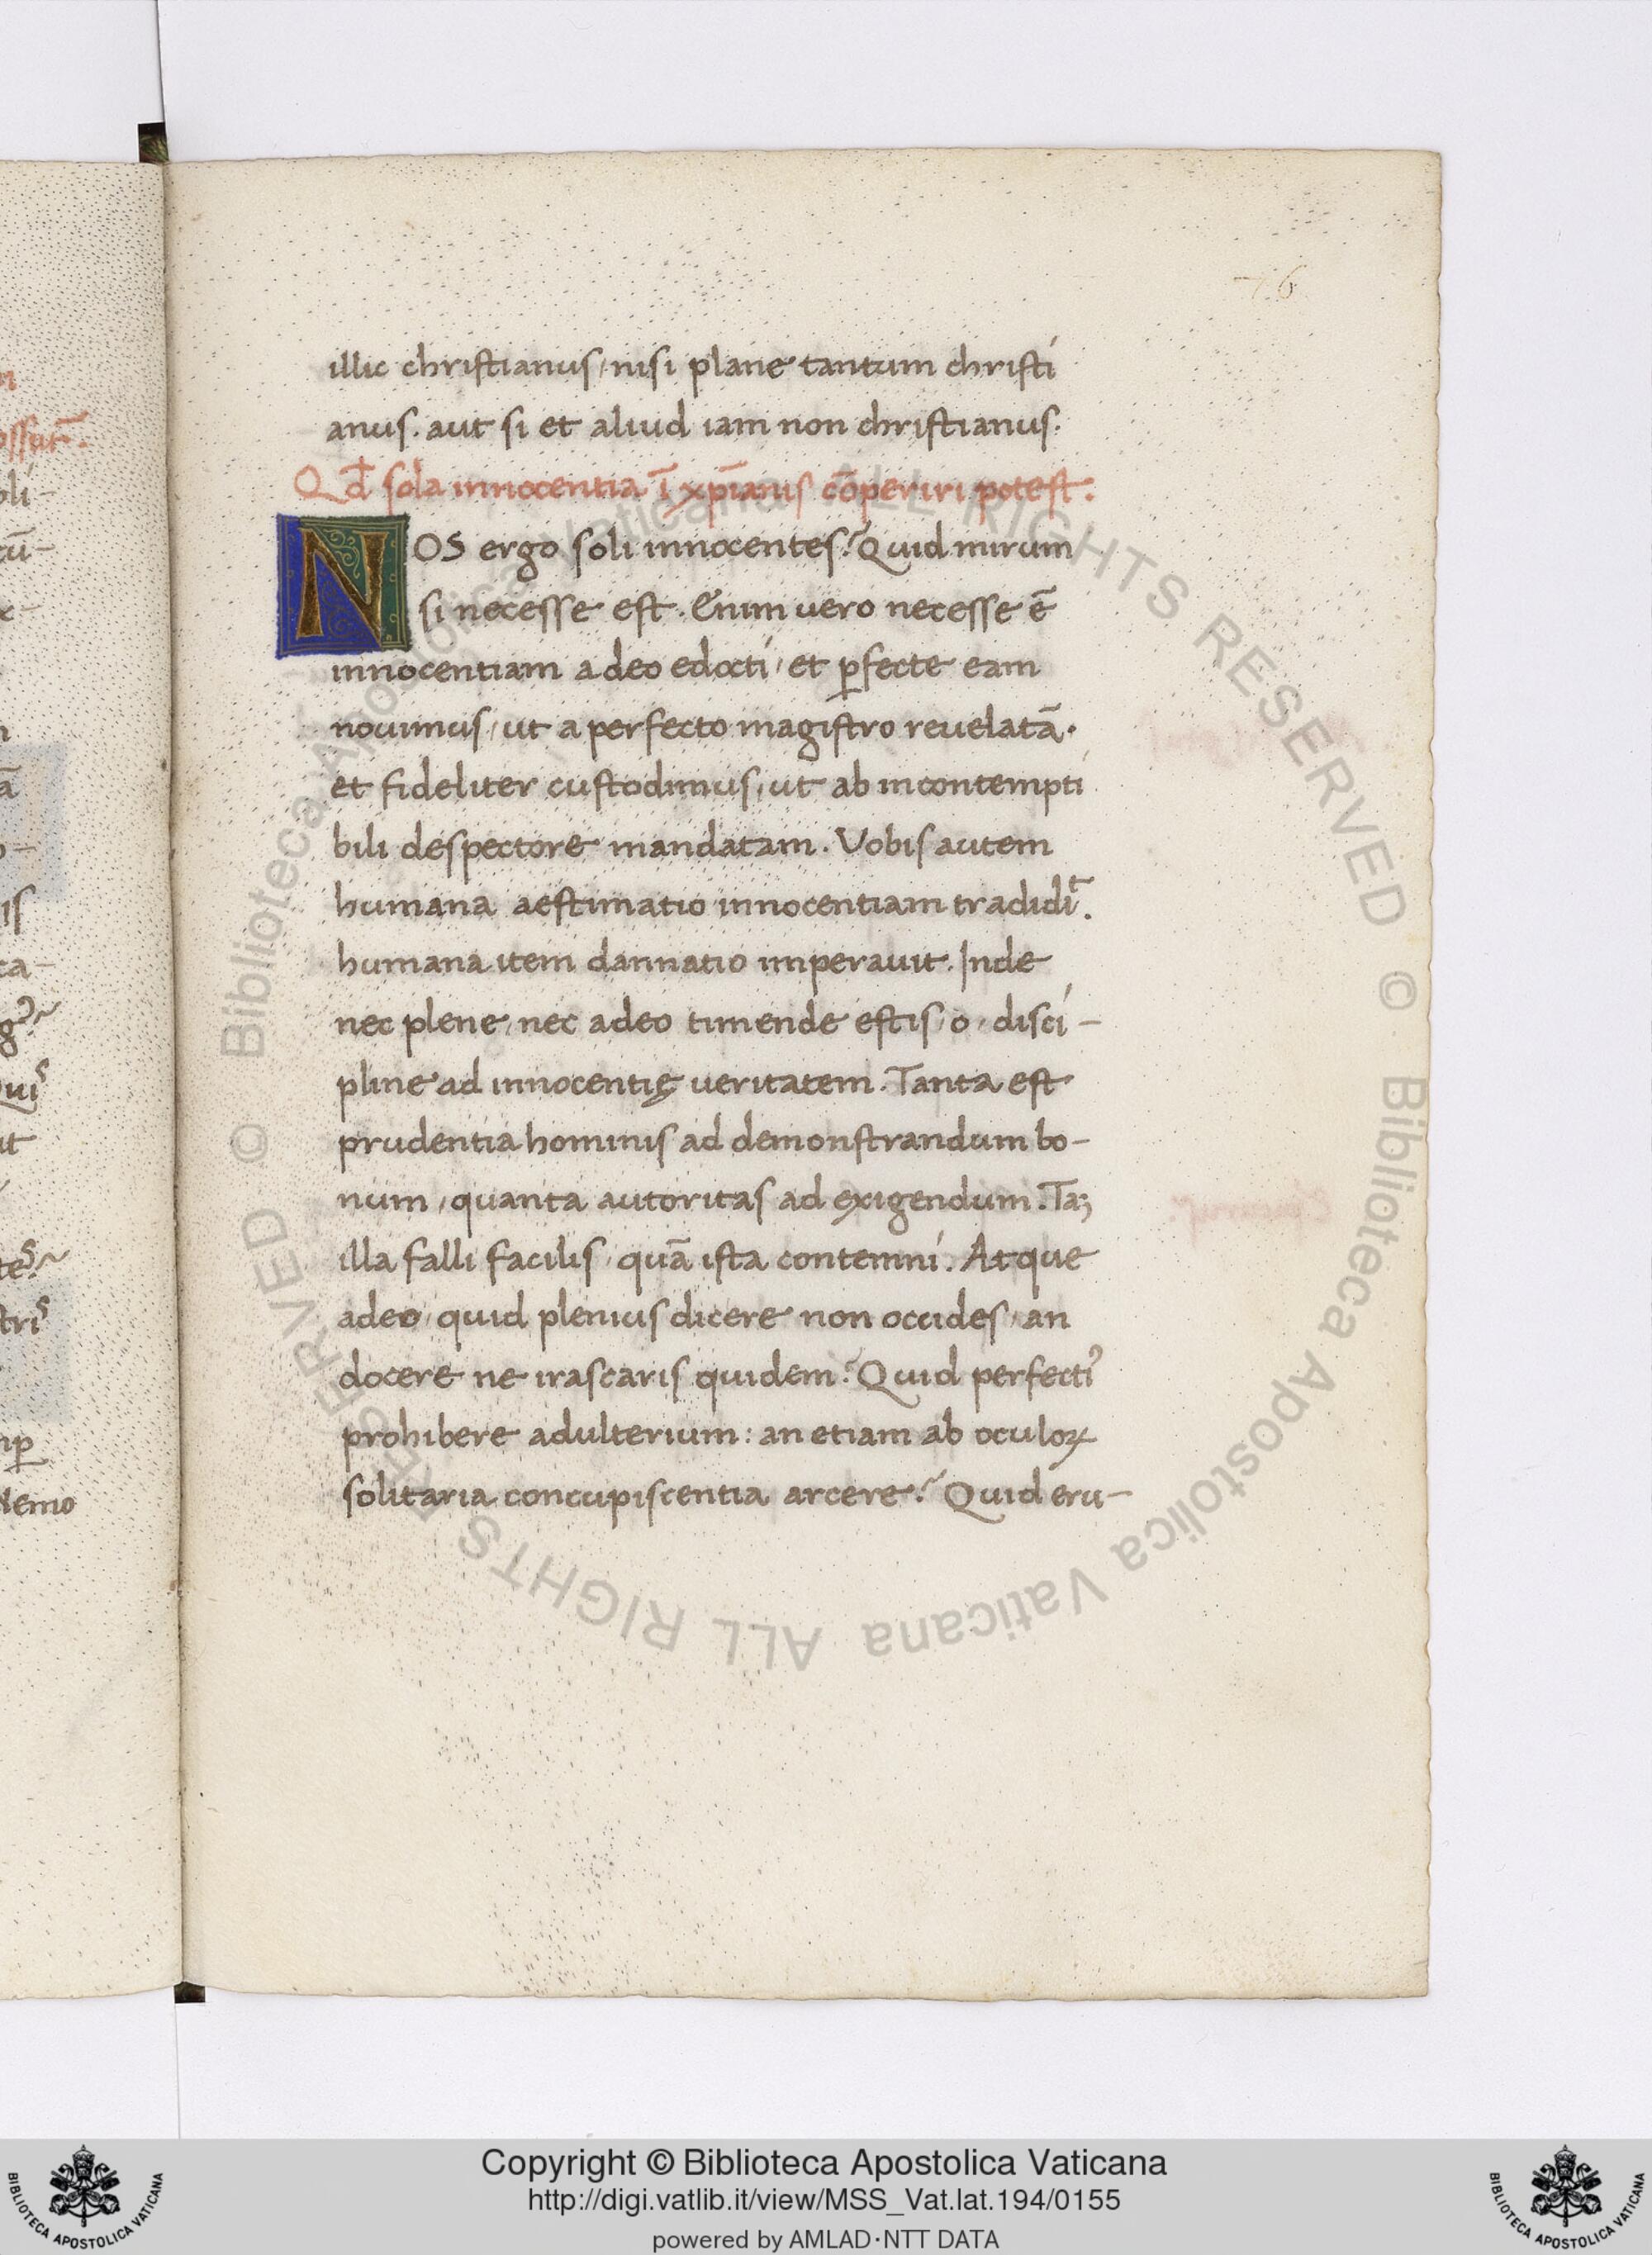 76
illic christianus, nisi plane tantum christi
anus. aut si et aliud iam non christianus.
Qđ sola innocentia ī xp̄ianis cōperiri potest.
NOS ergo soli innocentes? Quid mirum
si necesse est. Enim vero necesse ē
innocentiam a deo edocti, et ꝑfecte eam
novimus, ut a perfecto magistro revelatā.
et fideliter custodimus, ut ab incontempti
bili despectore mandatam. Vobis autem
humana aestimatio innocentiam tradidiᵗ.
humana item dannatio imperavit. Inde
nec plene, nec adeo timende estis, o, disci-
pline ad innocentię veritatem. Tanta est
prudentia hominis ad demonstrandum bo-
num, quanta autoritas ad exigendum. Taꝫ
illa falli facilis, quā ista contemni. Atque
adeo, quid plenius dicere non occides, an
docere ne irascaris quidem? Quid perfectiꝰ
prohibere adulterium: an etiam ab oculoꝝ
solitaria concupiscentia arcere? Quid eru-
ossut̄.
oli-
cū-
ca-
ut
Nemo
© Biblioteca Apostolica Vaticana ALL RIGHTS RESERVED © Biblioteca Apostolica Vaticana ALL RIGHTS RESERVED
Copyright © Biblioteca Apostolica Vaticana
http://digi.vatlib.it/view/MSS_Vat.lat.194/0155
powered by AMLAD·NTT DATA
BIBLIOTECA APOSTOLICA VATICANA
BIBLIOTECA APOSTOLICA VATICANA